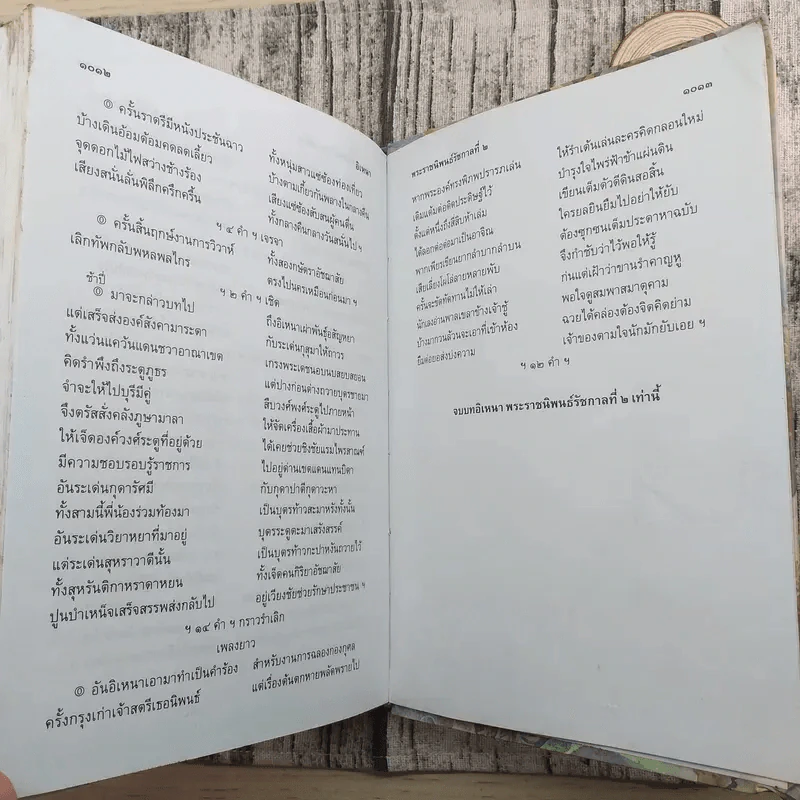 ๑๐๑๒
อิเหนา
๏ ครั้นราตรีมีหนังประชันฉาว ทั้งหนุ่มสาวแซ่ซ้องท่องเที่ยว
บ้างเดินอ้อมด้อมคดลดเลี้ยว บ้างตามเกี้ยวกันพลางในกลางคืน
จุดดอกไม้ไฟสว่างช้างร้อง เสียงแซ่ซ้องสับสนผู้คนตื่น
เสียงสนั่นลั่นพิลึกครึกครื้น ทั้งกลางคืนกลางวันสนั่นไป ฯ
ฯ ๔ คำ ฯ เจรจา
๏ ครั้นสิ้นฤกษ์งานการวิวาห์ ทั้งสองกษัตราอัชฌาสัย
เลิกทัพกลับพหลพลไกร ตรงไปนครเหมือนก่อนมา ฯ
ฯ ๒ คำ ฯ เชิด
ช้าปี่
๏ มาจะกล่าวบทไป ถึงอิเหนาเผ่าพันธุ์อสัญหยา
แต่เสร็จส่งองค์สังคามาระตา กับระเด่นกุสุมาให้ถาวร
ทั้งแว่นแคว้นแดนชวาอาณาเขต เกรงพระเดชนอบนบสยบสยอน
คิดรำพึงถึงระตูภูธร แต่ปางก่อนต่างถวายบุตรชายมา
จำจะให้ไปบุรีมีคู่ สืบวงศ์พงศ์ระตูไปภายหน้า
จึงตรัสสั่งคลังภูษามาลา ให้จัดเครื่องเสื้อผ้ามาประทาน
ให้เจ็ดองค์วงศ์ระตูที่อยู่ด้วย ได้เคยช่วยชิงชัยแรมไพรสาณฑ์
มีความชอบรอบรู้ราชการ ไปอยู่ด่านเขตแดนแทนบิดา
อันระเด่นกุดารัศมี กับกุดาปาตีกุดาวะหา
ทั้งสามนี้พี่น้องร่วมท้องมา เป็นบุตรท้าวสะมาหรังทั้งนั้น
อันระเด่นวิยาหยาที่มาอยู่ บุตรระตูตะมาเสรังสรรค์
แต่ระเด่นสุหราวาตีนั้น เป็นบุตรท้าวกะปาหงันถวายไว้
ทั้งสุหรันติกาหราดาหยน ทั้งเจ็ดคนกิริยาอัชฌาสัย
ปูนบำเหน็จเสร็จสรรพส่งกลับไป อยู่เวียงชัยช่วยรักษาประชาชน ฯ
ฯ ๑๔ คำ ฯ กราวรำเลิก
เพลงยาว
๏ อันอิเหนาเอามาทำเป็นคำร้อง สำหรับงานการฉลองกองกุศล
ครั้งกรุงเก่าเจ้าสตรีเธอนิพนธ์ แต่เรื่องต้นตกหายพลัดพรายไป
พระราชนิพนธ์รัชกาลที่ ๒
๑๐๑๓
หากพระองค์ทรงพิภพปรารภเล่น ให้รำเต้นเล่นละครคิดกลอนใหม่
เติมแต้มต่อติดประดิษฐ์ไว้ บำรุงใจไพร่ฟ้าข้าแผ่นดิน
ตั้งแต่หนึ่งถึงสี่สิบห้าเล่ม เขียนเต็มตัวดีดินสอสิ้น
ได้ลอกต่อต่อมาเป็นอาจิณ ใครยลยินยืมไปอย่าให้ยับ
พากเพียรเขียนยากลำบากลำบน ต้องซุกซนเต็มประดาหาฉบับ
เสียเลี่ยงไผ่ไล่ลายหลายพับ จึงกำชับว่าไว้พอให้รู้
ครั้นจะขัดทัดทานไม่ให้เล่า ก่นแต่เฝ้าว่าขานรำคาญหู
นักเลงอ่านพาลเขลาข้างเจ้าชู้ พอใจดูสมพาสมาตุคาม
บ้างมากวนล้วนจะเอาที่เข้าห้อง ฉวยได้คล่องต้องจิตคิดย่าม
ยืมต่อยอส่งบ่งความ เจ้าของตามใจนักมักยับเอย ฯ
ฯ ๑๒ คำ ฯ
จบบทอิเหนา พระราชนิพนธ์รัชกาลที่ ๒ เท่านี้